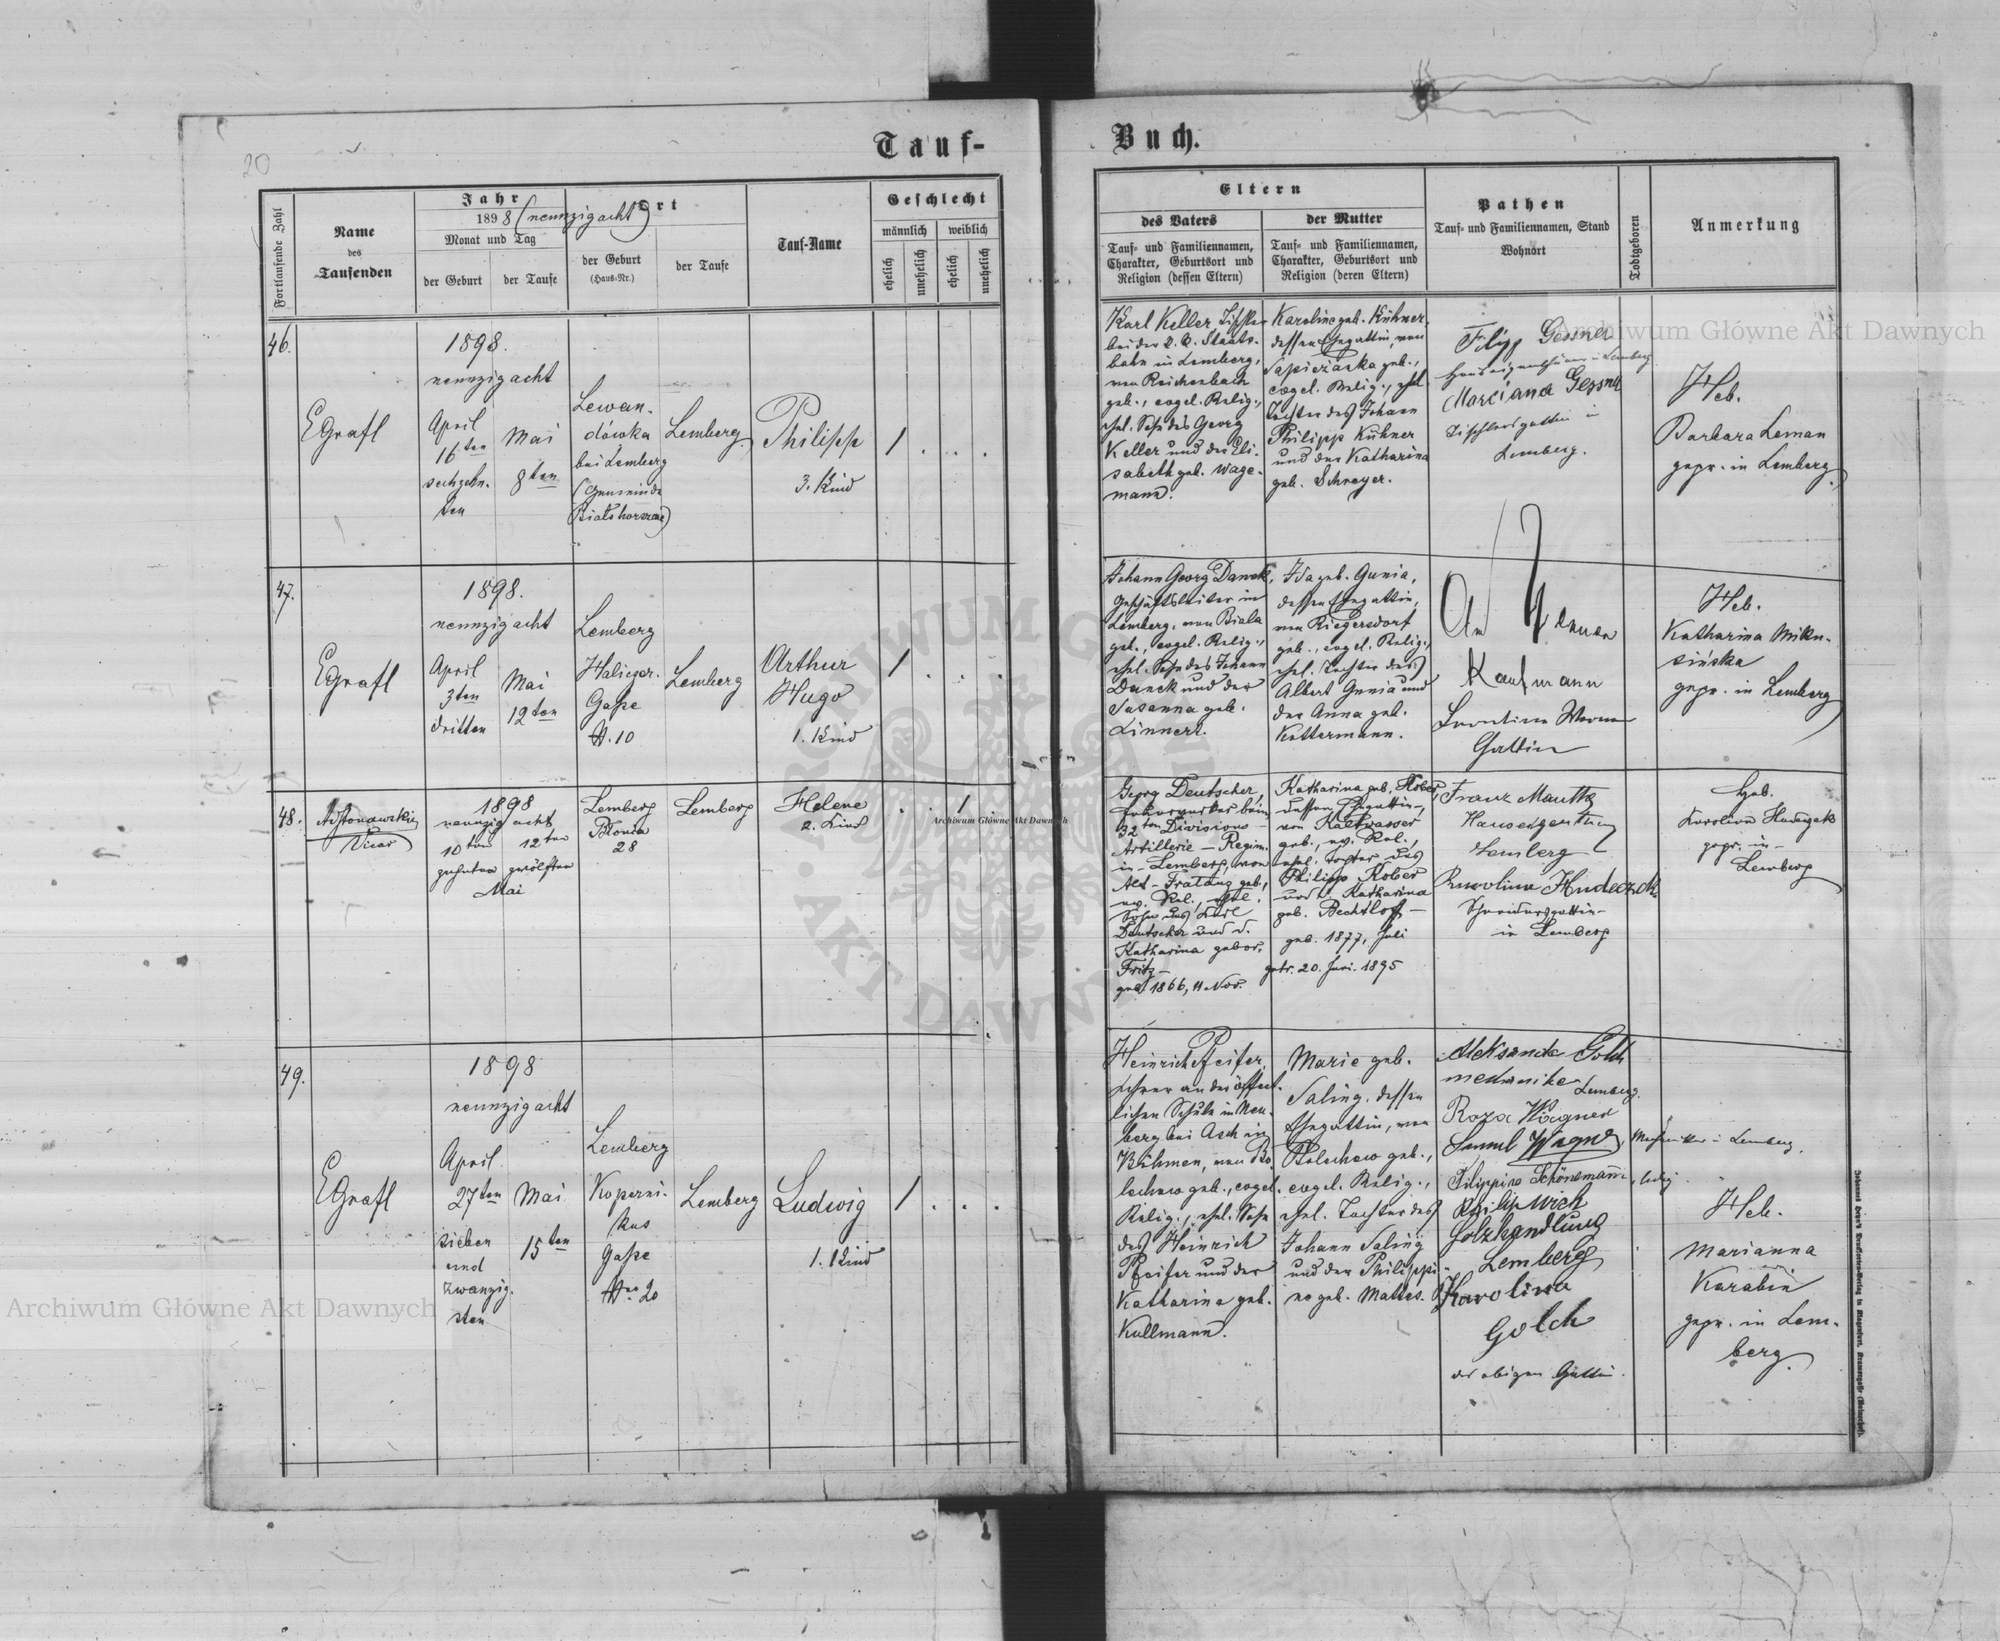 20
Tauf-
Buch.
Fortlaufende Zahl
Name
des
Taufenden
Jahr
1898 (neunzigacht)
Monat und Tag
der Geburt
der Taufe
Ort
der Geburt
(Haus-Nr.)
der Taufe
Tauf-Name
Geschlecht
männlich
weiblich
ehelich
unehelich
ehelich
unehelich
Eltern
des Vaters
Tauf- und Familiennamen,
Charakter, Geburtsort und
Religion (dessen Eltern)
der Mutter
Tauf- und Familiennamen,
Charakter, Geburtsort und
Religion (deren Eltern)
Pathen
Tauf- und Familiennamen, Stand
Wohnort
Todtgeboren
Anmerkung
46.
EGrafl
1898.
neunzigacht
April
16ten
sechzehn-
ten
Mai
8ten
Lewan-
dówka
bei Lemberg
(Gemeinde
Lemberg
Philipp
3. Kind
1
Karl Keller, Tischler
bei der k. k. Staats-
bahn in Lemberg,
von Reichenbach
geb., evgel. Relig.,
ehl. Sohn des Georg
Keller und der Eli-
sabeth geb. Wage-
mann.
Karoline geb. Kühner,
dessen Ehegattin, von
Sapieżanka geb.,
evgel. Relig., ehl.
Tochter des Johann
Philipp Kühner
und der Katharina
geb. Schreyer.
Filipp Gessner
Hauseigenthümer in Lemberg
Marciana Gessner
Tischlersgattin in
Lemberg.
Heb.
Barbara Leman
gepr. in Lemberg.
47.
EGrafl
1898.
neunzigacht
April
3ten
dritten
Mai
12ten
Lemberg
Halizer-
Gasse
N. 10
Lemberg
Arthur
Hugo
1. Kind
1
Johann Georg Danek,
Geschäftsleiter in
Lemberg, von Biala
geb., evgel. Relig.,
ehl. Sohn des Johann
Danek und der
Susanna geb.
Linnert.
Ida geb. Gunia,
dessen Ehegattin,
von Riegersdorf
geb., evgel. Relig.,
ehl. Tochter des
Albert Gunia und
der Anna geb.
Kottermann.
Kaufmann
Gattin
Heb.
Katharina Miku-
sińska
gepr. in Lemberg
48.
Vicar
1898
neunzigacht
10ten 12ten
zehnten zwölften
Mai
Lemberg
Błonia
28
Lemberg
Helene
2. Kind
1
Georg Deutscher,
beim
32ten Divisions-
Artillerie-Regim.
in Lemberg, von
Alt-Fratautz geb.,
ev. Rel., ehl.
Sohn des Karl
Deutscher und d.
Katharina gebor.
Fritz-
geb. 1866, 11 Nov.
Katharina geb. Kober,
dessen Ehegattin-
von Kaltwasser
geb., ev. Rel.,
ehel. Tochter des
Philipp Kober
und d. Katharina
geb. Bechtloff-
geb. 1877, Juli
getr. 20. Juni. 1895
Franz Mauthe
Lemberg
Karolina Hudeczek
Schneidersgattin-
in Lemberg
Heb.
Karolina Hudeczek
gepr. in-
Lemberg
49.
EGrafl
1898
neunzigacht
April
27ten
sieben
und
zwanzig-
sten
Mai
15ten
Lemberg
Koperni-
kus
Gasse
Nro 20
Lemberg
Ludwig
1. Kind
1
Heinrich Pfeifer,
Lehrer an der öffent-
lichen Schule in Neu-
berg bei Asch in
Böhmen, von Bo-
lechow geb., evgel.
Relig., ehl. Sohn
des Heinrich
Pfeifer und der
Katharina geb.
Kullmann.
Marie geb.
Saling, dessen
Ehegattin, von
Bolechow geb.,
evgel. Relig.,
ehl. Tochter des
Johann Saling
und der Philippi-
ne geb. Mattes.
Aleksander Golch
mechaniker Lemberg.
Roza Wagner
Samuel Wagner, Mechaniker in Lemberg.
Filippine Schönemann, ledig
Philip Wich
Holzhandlung
Lemberg
Karolina
Golch
des obigen Gattin.
Heb.
Marianna
Karabin
gepr. in Lem-
berg.
Archiwum Główne Akt Dawnych
Archiwum Główne Akt Dawnych
Archiwum Główne Akt Dawnych